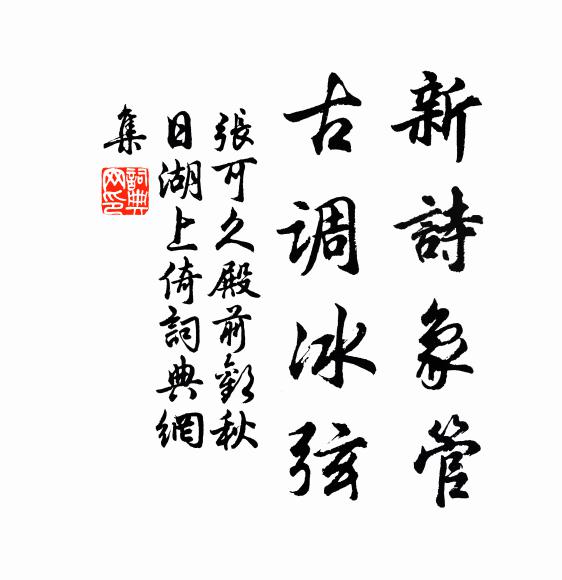 新詩象管
古調冰弦
張可久殿前歡秋
日湖上倚詞典網
集
詞典网印